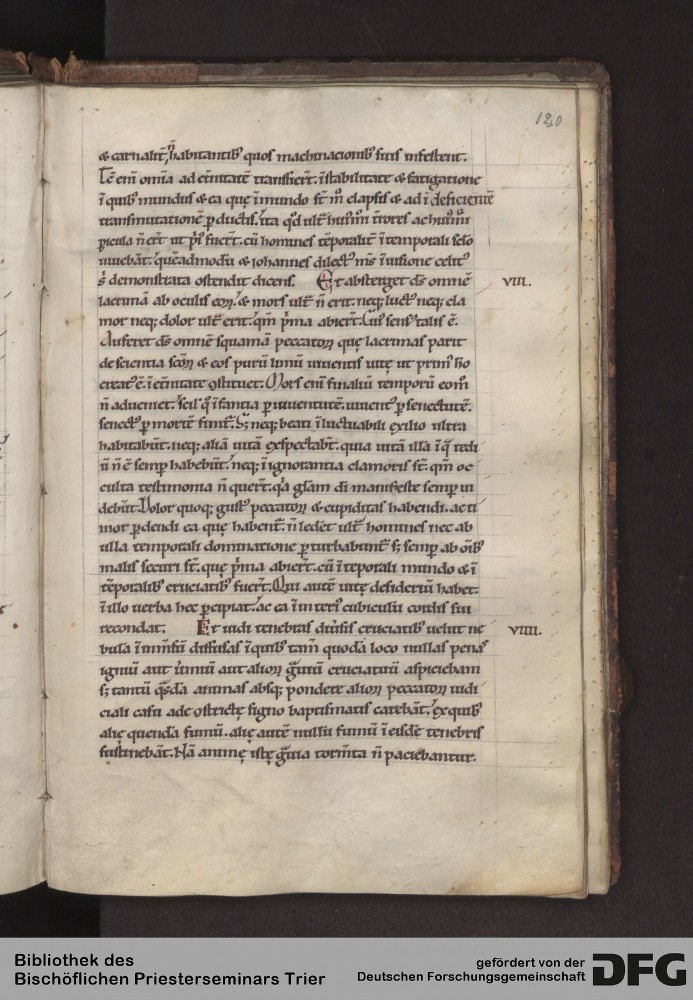 120
& carnalit̄ habitantib; quos machinacionib; suis infestent.
Tc̄ eni͞ omīa ad et̄nitatē transier̄t. īstabilitate & fatigatione
ī quib; mundus & ea quę ī mundo st̄ m̊ elapsis & ad ī deficientē
transmutationē ꝑductis. ita qd̄ ult̄ hui͞mi t̄rores ac hui͞mi
ꝑicula n̄ er̄t ut p͛i fuer̄t. cū homines tēporalit̄ ī temporali sc̄lo
uiuebāt. quēadmodū & iohannes dilect; m̄s ī uisione celit;
s͛ demonstrata ostendit dicens. Et absterget ds̄ omnē
VIII.
lacrimā ab oculis eoꝝ. & mors ult̄ n̄ erit. neq; luct; neq; cla
mor neq; dolor ult̄ erit. qm̄ p͛ma abier̄t. Cui; sens; talis ē.
Auferet ds̄ omnē squamā peccatoꝝ quę lacrimas parit
de scientia scōꝝ & eos purū limū uiuentis uitę ut prim; hō
creat; ē. ī et̄nitate ꝯstituet. Mors eni͞ finaliū temporū eoꝝ
n̄ adueniet. scil̄ q̊ īfantia ꝑ iuuentutē. iuuent; ꝑ senectutē.
senect; ꝑ mortē finit̄. S; neq; beati ī luctuabili exilio ultra
habitabūt. neq; aliā uitā exspectab̄t. quia uitā illā ī q̄ tedi
ū n̄ ē semꝑ habebūt. neq; ī ignorantia clamoris st̄. qm̄ oc
culta testimonia n̄ quer̄t. q͛a glām di͞ manifeste semꝑ ui
debūt. Dolor quoq; gust; peccatoꝝ & cupiditas habendi. ac ti
mor ꝑdendi ea quę habent̄. n̄ ledet ult̄ homines nec ab
ulla temporali dominatione ꝑturbabunt̄ s; semꝑ ab oīb;
malis securi st̄. quę p͛ma abier̄t. cū ī tēporali mundo & ī
tēporalib; cruciatib; fuer̄t. Qui autē uitę desideriū habet.
ī illo uerba hec ꝑcipiat. ac ea ī int͛ri cubiculū cordis sui
recondat. Et uidi tenebras diu͛sis cruciatib; uelut ne
VIIII.
bulā īm̄sū diffusas ī quib; tam̄ quodā loco nullas penas
igniū aut u͛miū aut alioꝝ ḡuiū cruciatuū aspiciebam
s; tantū q͛sdā animas absq; pondere alioꝝ peccatoꝝ iudi
ciali casu ade ꝯstrictę signo baptismatis carebāt. ex quib;
alię quendā fumū. alię autē nullū fumū ī eisdē tenebris
sustinebāt. Nā animę istę ḡuia torm̄ta n̄ paciebantur.
Bibliothek des
Bischöflichen Priesterseminars Trier
gefördert von der
Deutschen Forschungsgemeinschaft
DFG